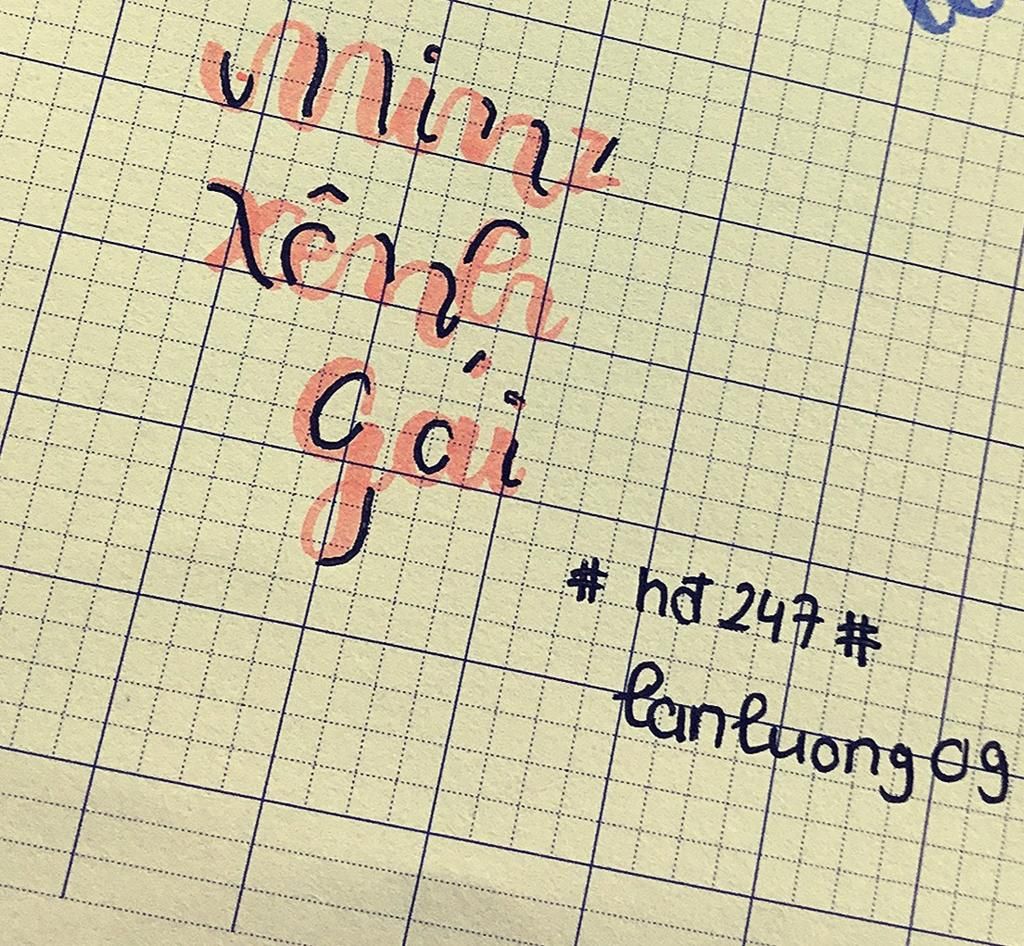 Minz
xênh
gái
# hđ 247 #
lanluong09